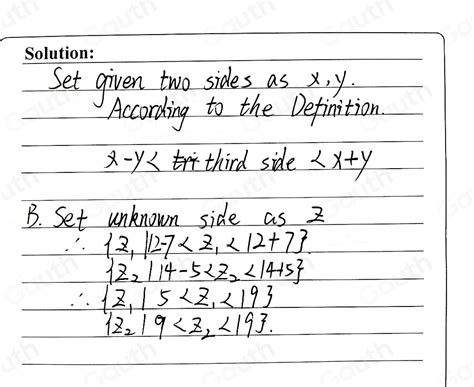 Solution:
Set given two sides as x, y.
According to the Definition.
x-y< tri third side <x+y
B. Set unknown side as z
∴ {z₁|12-7<z₁<12+7}.
{z₂|14-5<z₂<14+5}
∴ {z₁|5<z₁<19}
{z₂|9<z₂<19}.